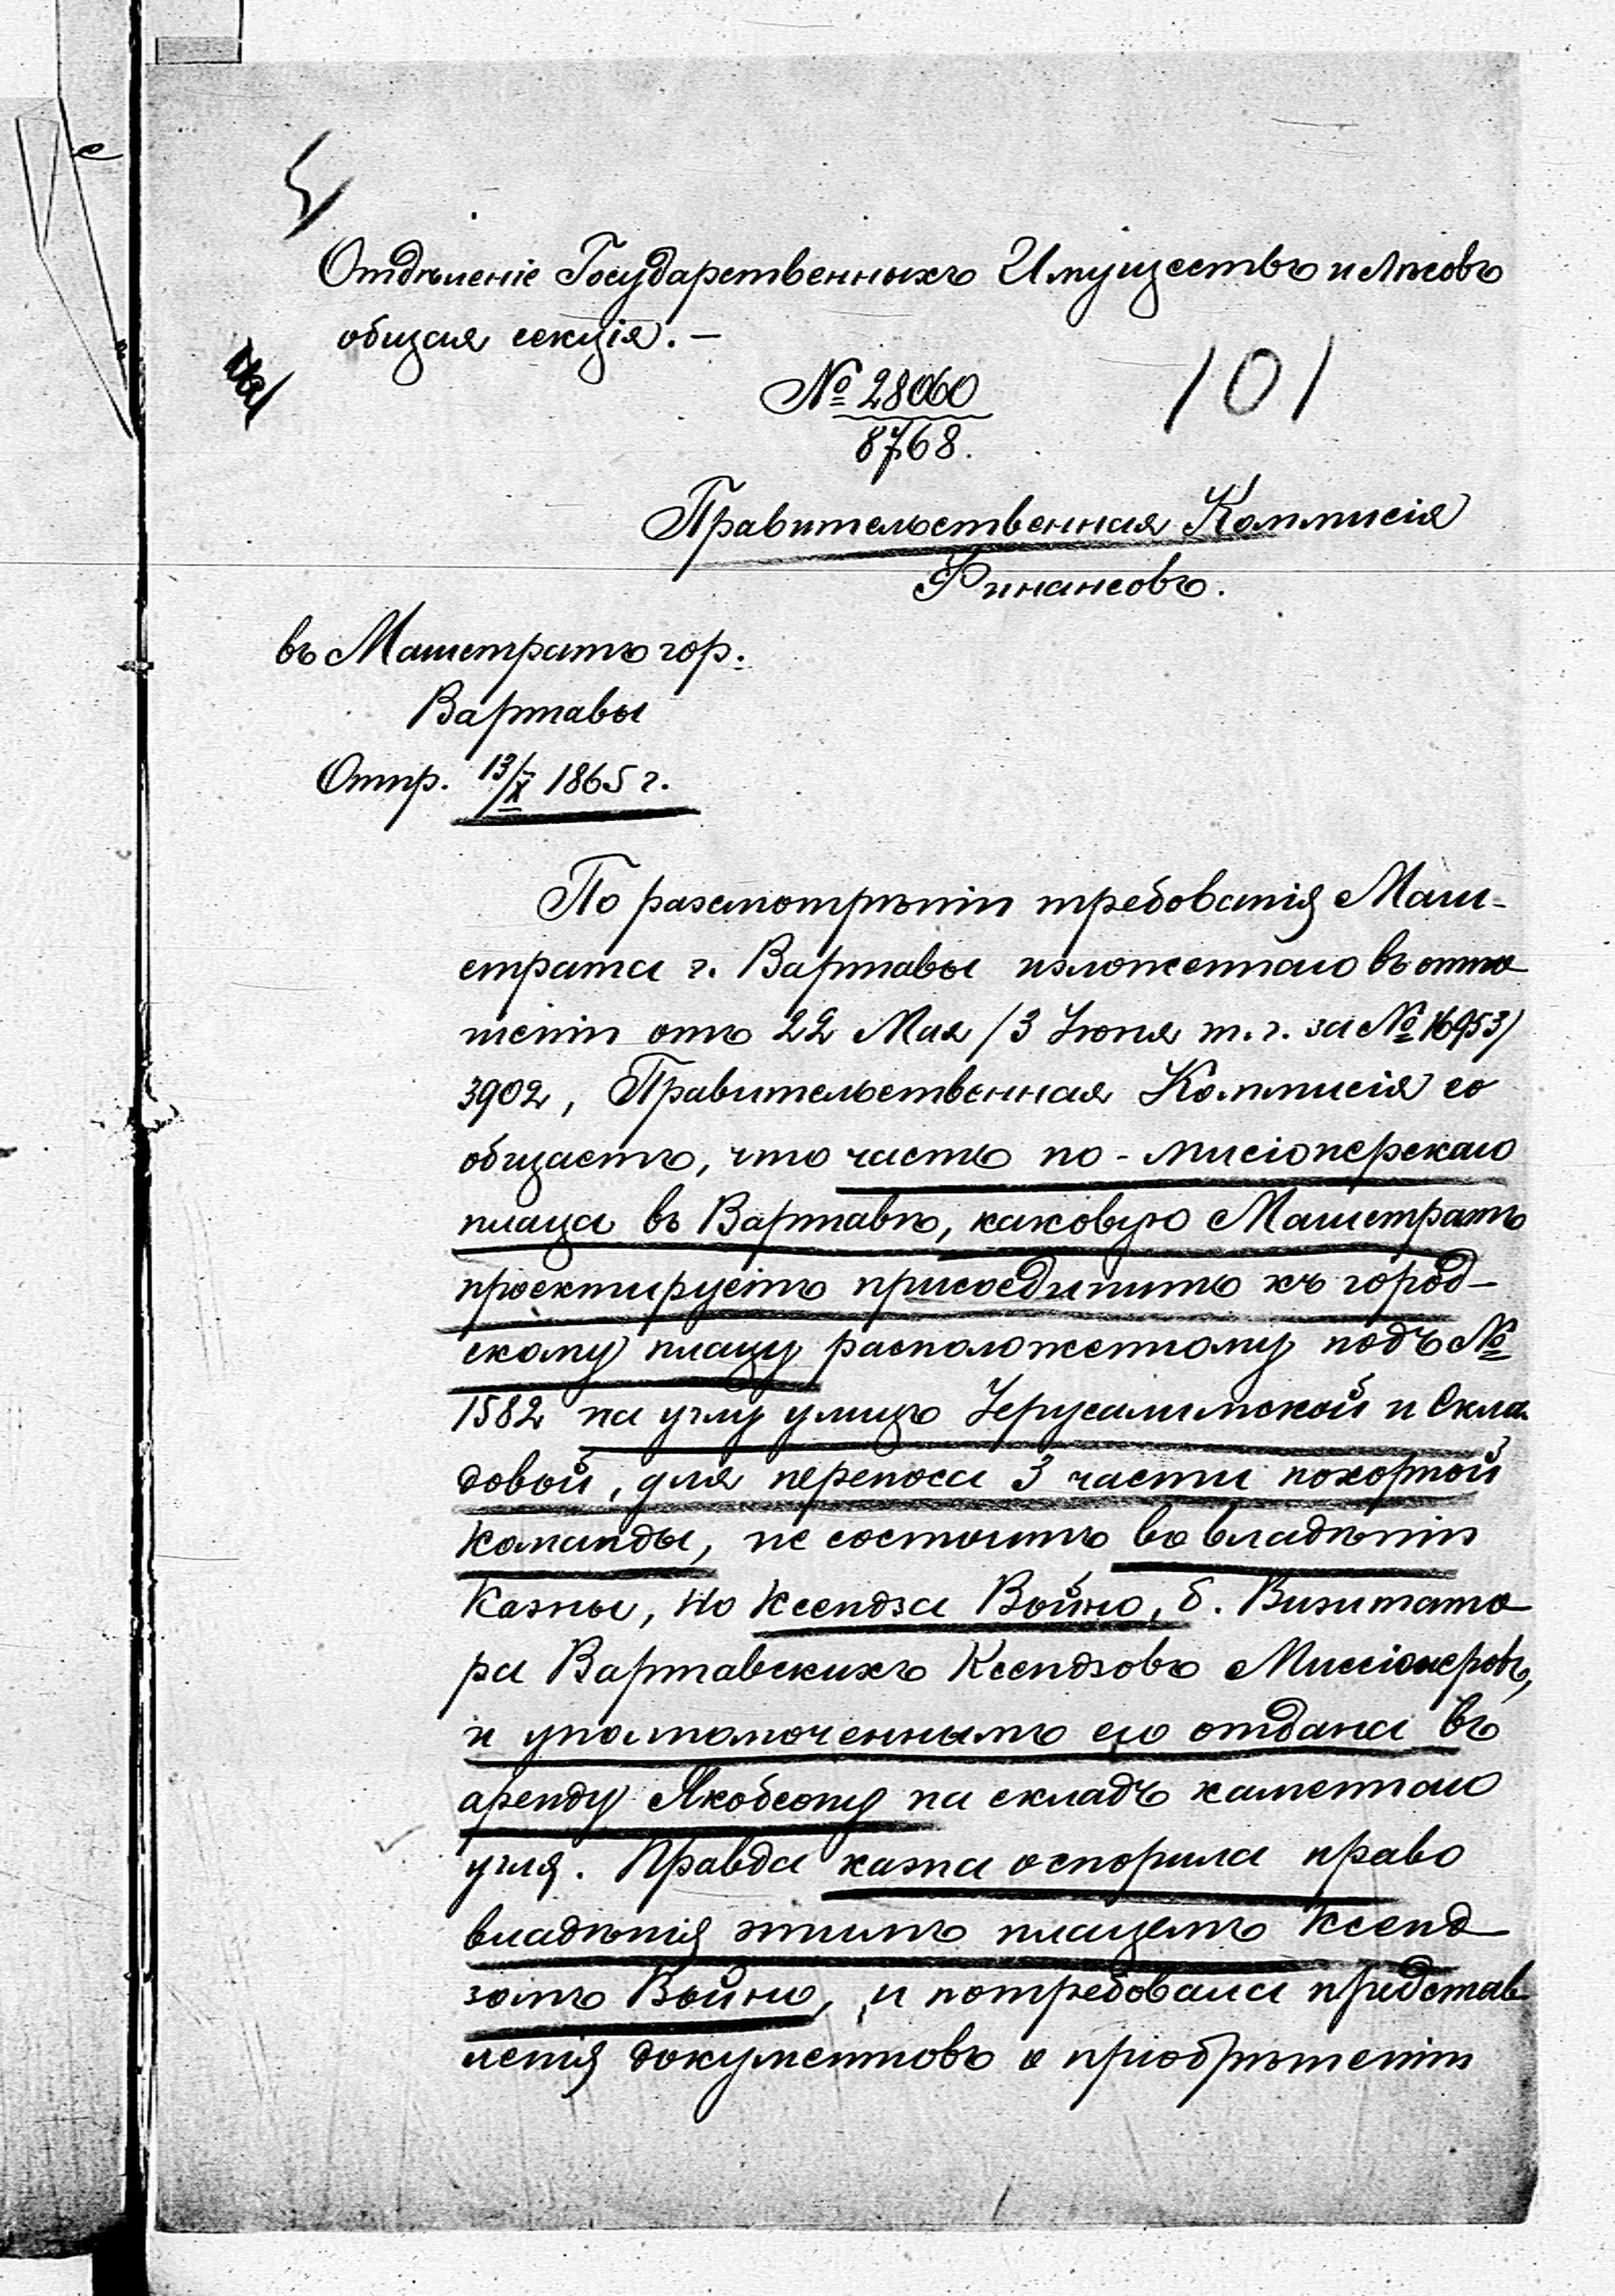 Отдѣленіе Государственныхъ Имуществъ и Лѣсовъ
общая секція. —
101
№ 28060
8768.
Правительственная Коммисія
Финансовъ.
въ Магистратъ гор.
Варшавы
Отпр. 13/X 1865 г.
По разсмотрѣніи требованія Маги-
страта г. Варшавы изложеннаго въ отно
шеніи отъ 22 Мая / 3 Іюня т. г. за № 16953/
3902, Правительственная Коммисія со
общаетъ, что часть по-мисіонерскаго
плаца въ Варшавѣ, каковую Магистратъ
проектируетъ присоединить къ город-
скому плацу расположенному подъ №
1582 на углу улицъ Іерусалимской и Скла
довой, для переноса 3 части пожарной
команды, не состоитъ во владѣніи
Казны, но Ксендза Войно, б. Визитато
ра Варшавскихъ Ксендзовъ Миссіонеровъ,
и уполномоченнымъ его отдана въ
аренду Якобсону на складъ каменнаго
угля. Правда казна оспорила право
владѣнія этимъ плацемъ Ксенд
зомъ Войно, и потребовала представ
ленія документовъ о пріобрѣтеніи